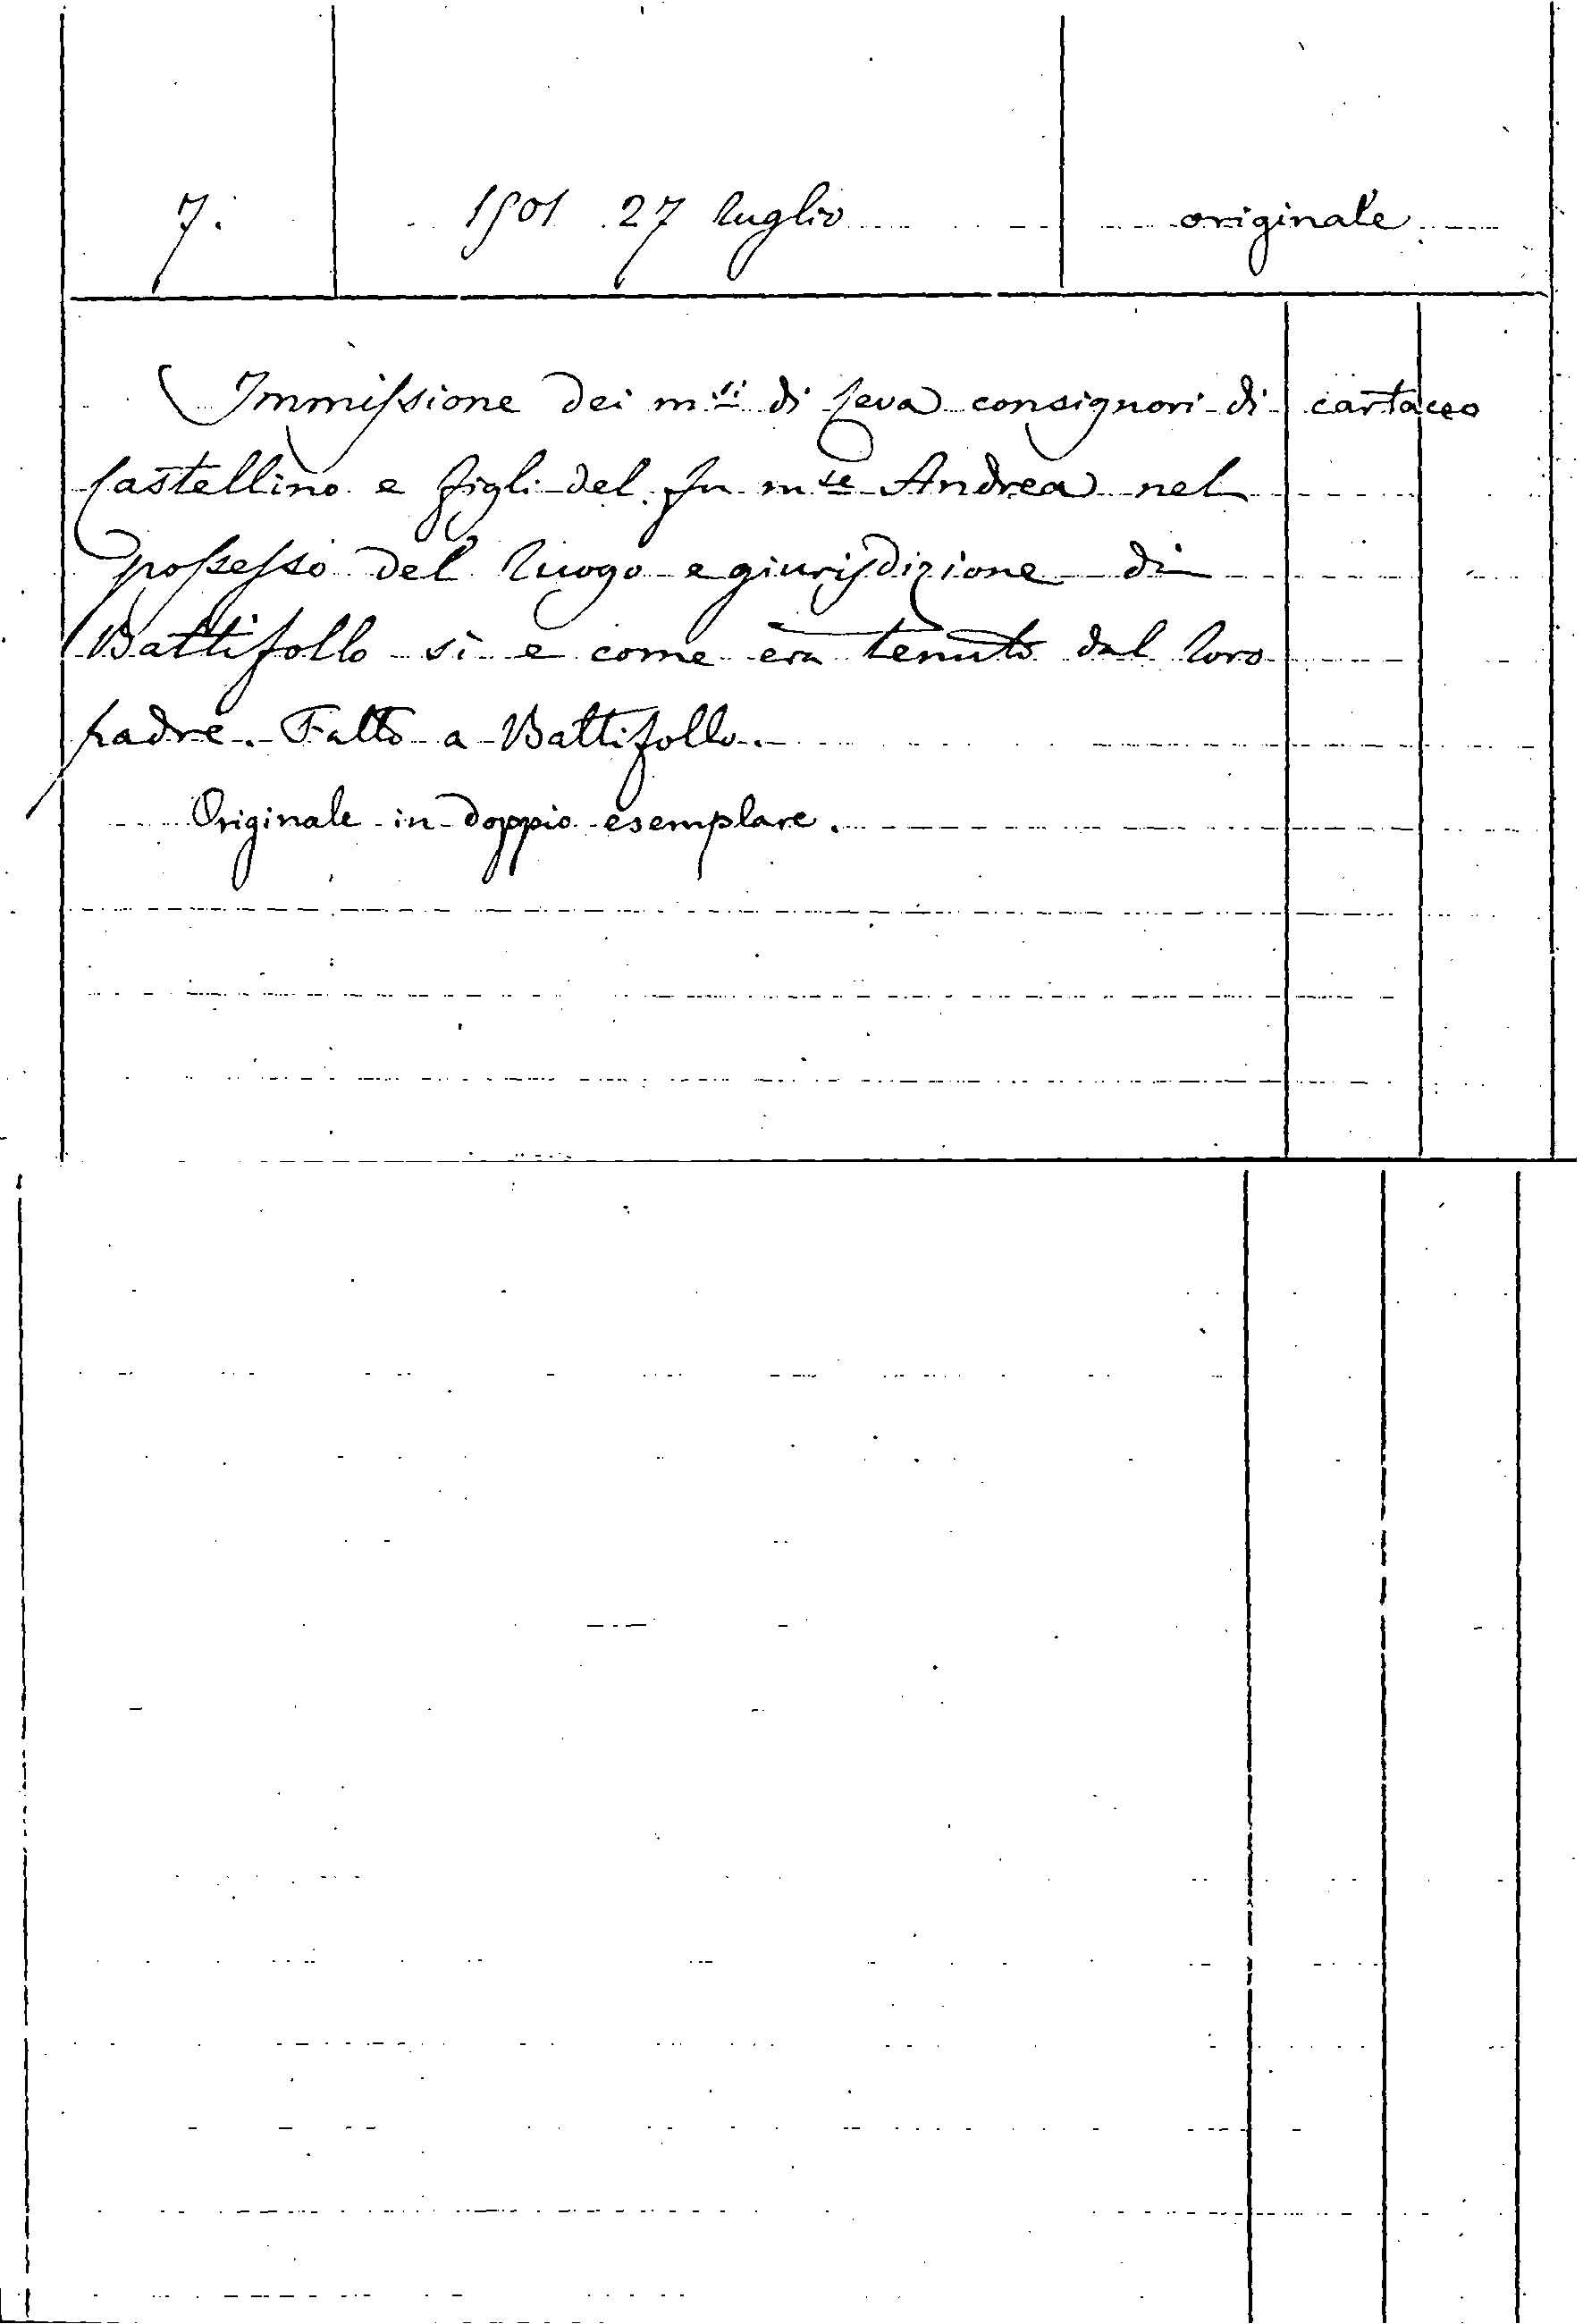 7. 1501 27 luglio originale
Immissione dei m.si di Ceva consignori di cartaceo
Castellino e figli del fu m.se Andrea nel
possesso del luogo e giurisdizione di
Battifollo sì e come era tenuto dal loro
padre. Fatto a Battifollo.
Originale in doppio esemplare.